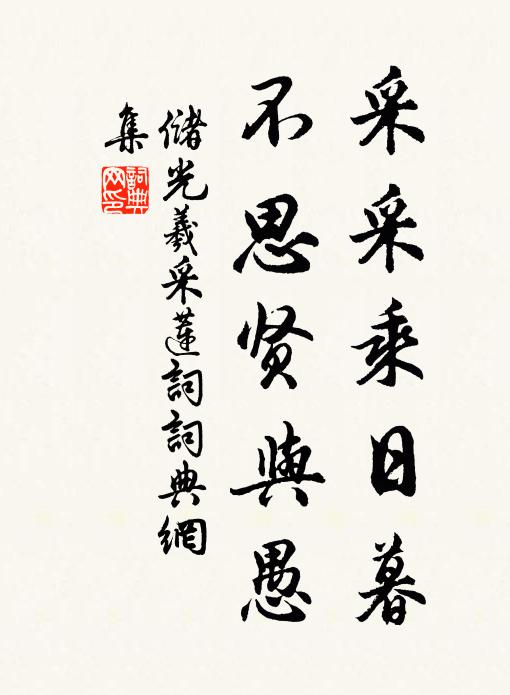 采采乘日暮
不思贤與愚
儲光羲采蓮詞詞典網
集
詞典网印